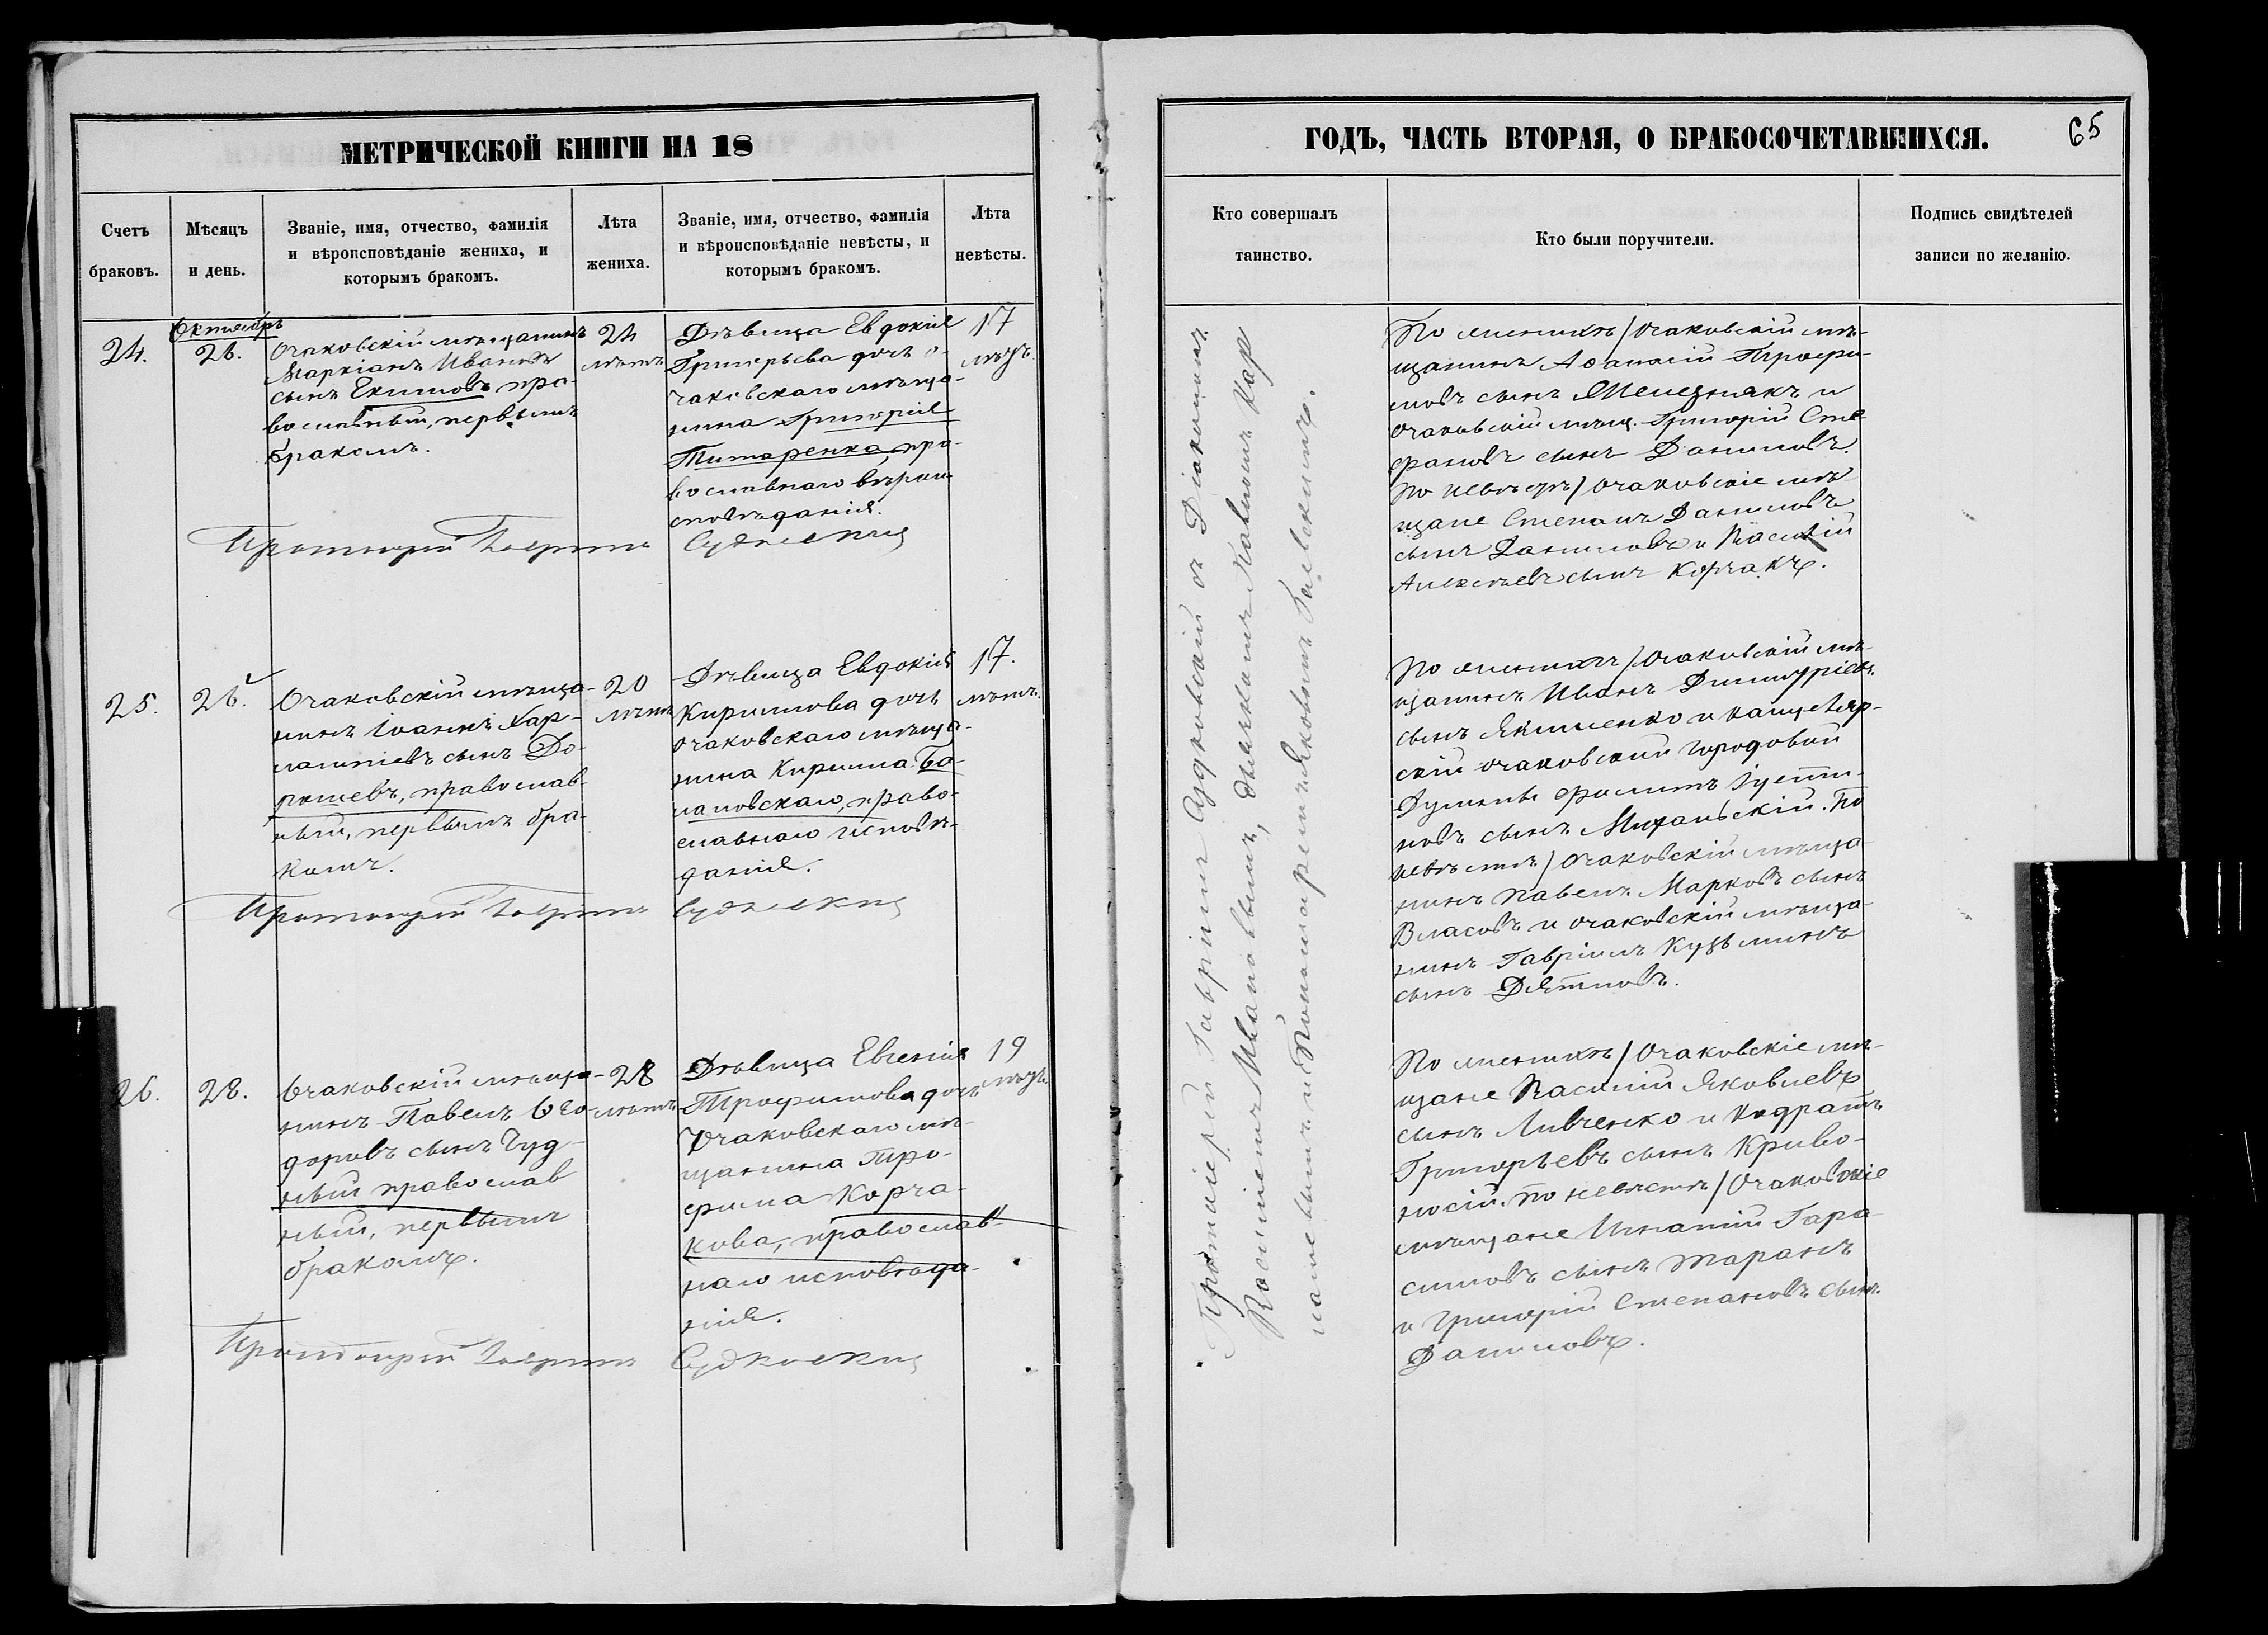 МЕТРИЧЕСКОЙ КНИГИ НА 18
Счетъ браковъ.
Мѣсяцъ и день.
Званіе, имя, отчество, фамилія
и вѣроисповѣданіе жениха, и
которымъ бракомъ.
Лѣта
жениха.
Званіе, имя, отчество, фамилія
и вѣроисповѣданіе невѣсты, и
которымъ бракомъ.
Лѣта
невѣсты.
24.
Октябрь
26.
Очаковскій мѣщанинъ
Маркіанъ Ивановъ
сынъ Екимовъ пра-
вославный, первымъ
бракомъ.
24
лѣтъ
Дѣвица Евдокія
Григорьева дочь о-
чаковскаго мѣща-
нина Григорія
Титаренка, пра-
вославнаго вѣроис-
повѣданія.
17
лѣтъ.
Протоіерей Гавріилъ Судковскій
25.
26.
Очаковскій мѣща-
нинъ Іоаннъ Хар-
лампіевъ сынъ До-
рошевъ, православ-
ный, первымъ бра-
комъ.
20
лѣтъ
Дѣвица Евдокія
Кириллова дочь
очаковскаго мѣща-
нина Кирилла Бо-
лаповскаго, право-
славнаго исповѣ-
данія.
17.
лѣтъ.
Протоіерей Гавріилъ Судковскій
26.
28.
Очаковскій мѣща-
нинъ Павелъ Ѳео-
доровъ сынъ Чуд-
ный православ
ный, первымъ
бракомъ.
28
лѣтъ
Дѣвица Евгенія
Трофимова дочь
Очаковскаго мѣ-
щанина Тро-
фима Корча-
кова, православ-
наго исповѣда-
нія.
19
лѣтъ.
Протоіерей Гавріилъ Судковскій
ГОДЪ, ЧАСТЬ ВТОРАЯ, О БРАКОСОЧЕТАВШИХСЯ.
65
Кто совершалъ
таинство.
Кто были поручители.
Подпись свидѣтелей
записи по желанію.
Протоіерей Гавріилъ Судковскій съ Діакономъ
Василіемъ Ивановымъ, дьячкомъ Павломъ Кар
пачевымъ и Пономаремъ Яковомъ Галевскимъ.
По женихѣ / Очаковскій мѣ-
щанинъ Аѳанасій Трофи-
мовъ сынъ Мелезнякъ и
Очаковскій мѣщ. Григорій Сте-
фановъ сынъ Даниловъ.
По невѣстѣ / Очаковскіе мѣ
щане Степанъ Даниловъ
сынъ Даниловъ и Василій
Алексѣевъ сынъ Корчакъ.
По женихѣ / Очаковскій мѣ-
щанинъ Иванъ Димитріевъ
сынъ Якименко и канцеляр-
скій очаковской городовой
Думы Филипъ Іусти-
новъ сынъ Михальскій. По
невѣстѣ / Очаковскій мѣща-
нинъ Павелъ Марковъ сынъ
Власовъ и очаковскій мѣща-
нинъ Гавріилъ Кузьминъ
сынъ Дятловъ.
По женихѣ / Очаковскіе мѣ-
щане Василій Яковлевъ
сынъ Ливченко и Кодратъ
Григорьевъ сынъ Криво-
носій. По невѣстѣ / Очаковскіе
мѣщане Игнатій Гара
симовъ сынъ Таранъ
и Григорій Степановъ сынъ
Даниловъ.